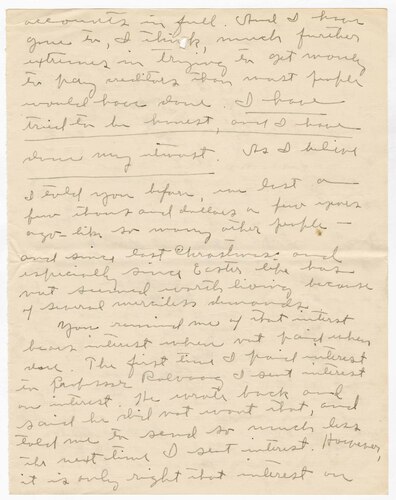 accounts in full. And I have
gone to, I think, much further
extremes in trying to get money
to pay creditors than most people
would have done. I have
tried to be honest, and I have
done my utmost. As I believe
I told you before, we lost a
few thousand dollars a few years
ago - like so many other people -
and since last Christmas and
especially since Easter life has
not seemed worth living because
of several merciless demands.
You remind me that interest
bears interest when not paid when
due. The first time I paid interest
to Professor I sent interest
on interest. He wrote back and
said he did not want that, and
told me to send so much less
the next time I sent interest. However,
it is only right that interest on